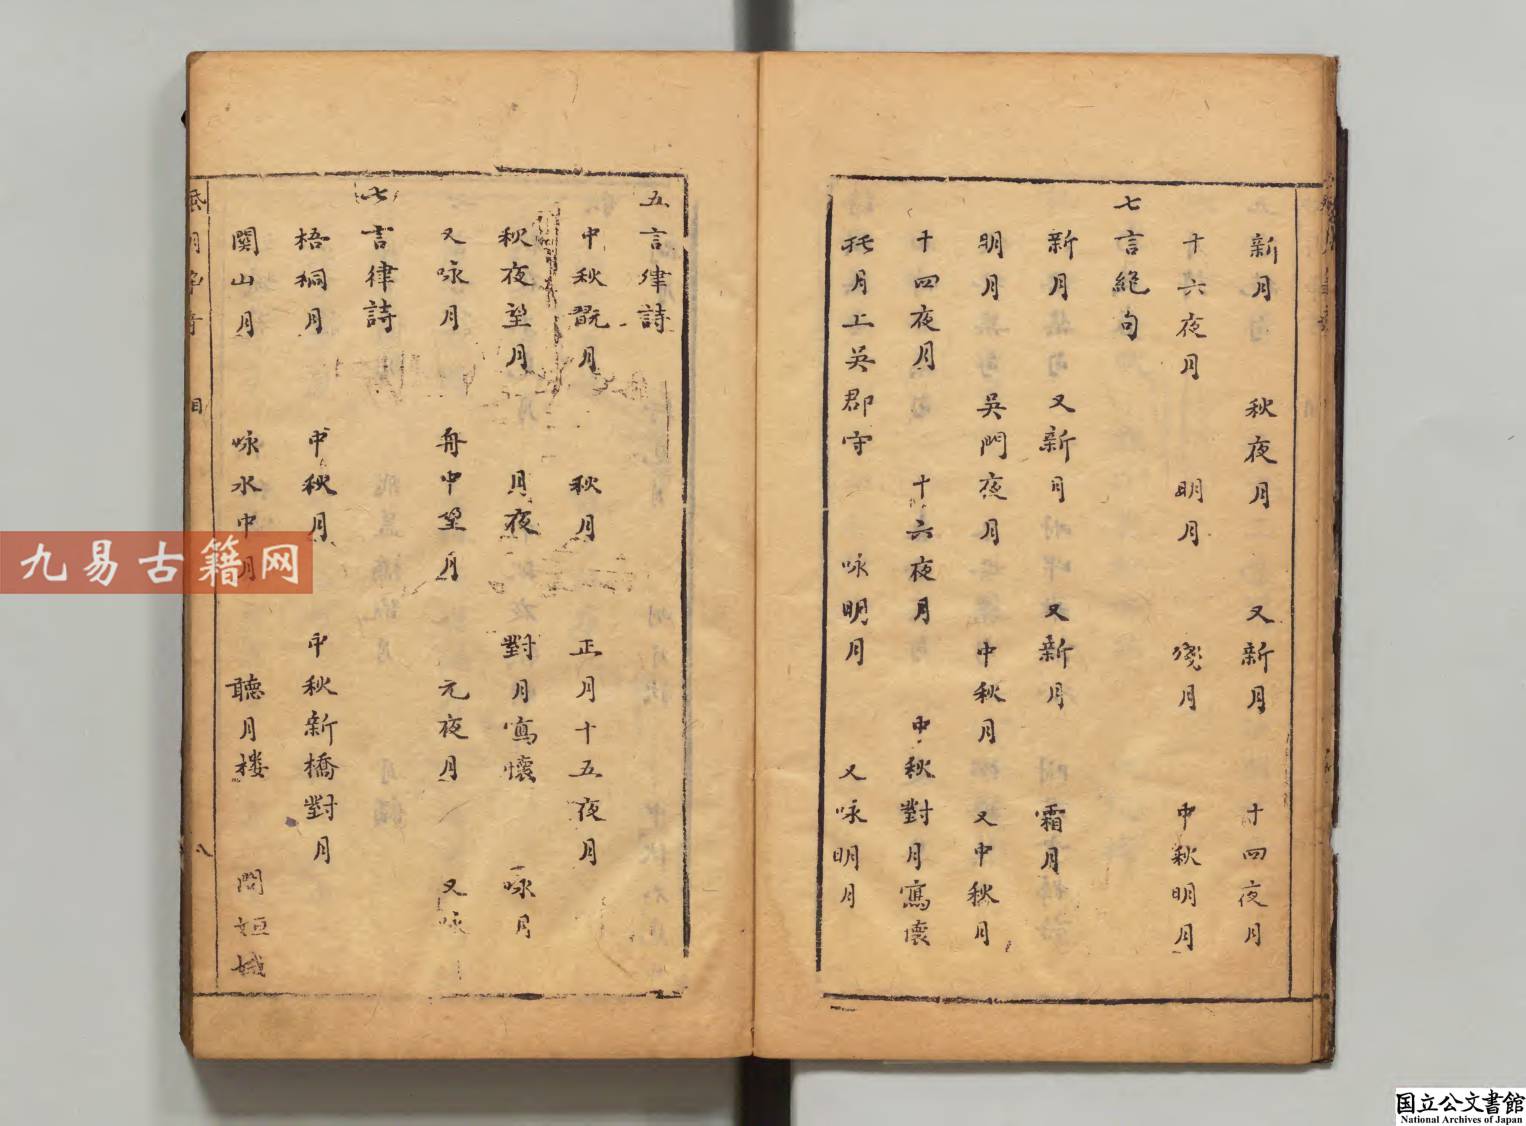 新月　秋夜月　又新月　十四夜月
十六夜月　明月　殘月　中秋明月
七言絕句
新月　又新月　又新月　霜月
明月　吳門夜月　中秋月　又中秋月
十四夜月　十六夜月　中秋對月寫懷
月上吳郡守　咏明月　又咏明月
五言律詩
中秋翫月　秋月　正月十五夜月
秋夜望月　月夜　對月寫懷　咏月
又咏月　舟中望月　元夜月　又咏
七言律詩
梧桐月　中秋月　中秋新橋對月
關山月　咏水中月　聽月楼　問姮娥
目　八
九易古籍网
国立公文書館
National Archives of Japan